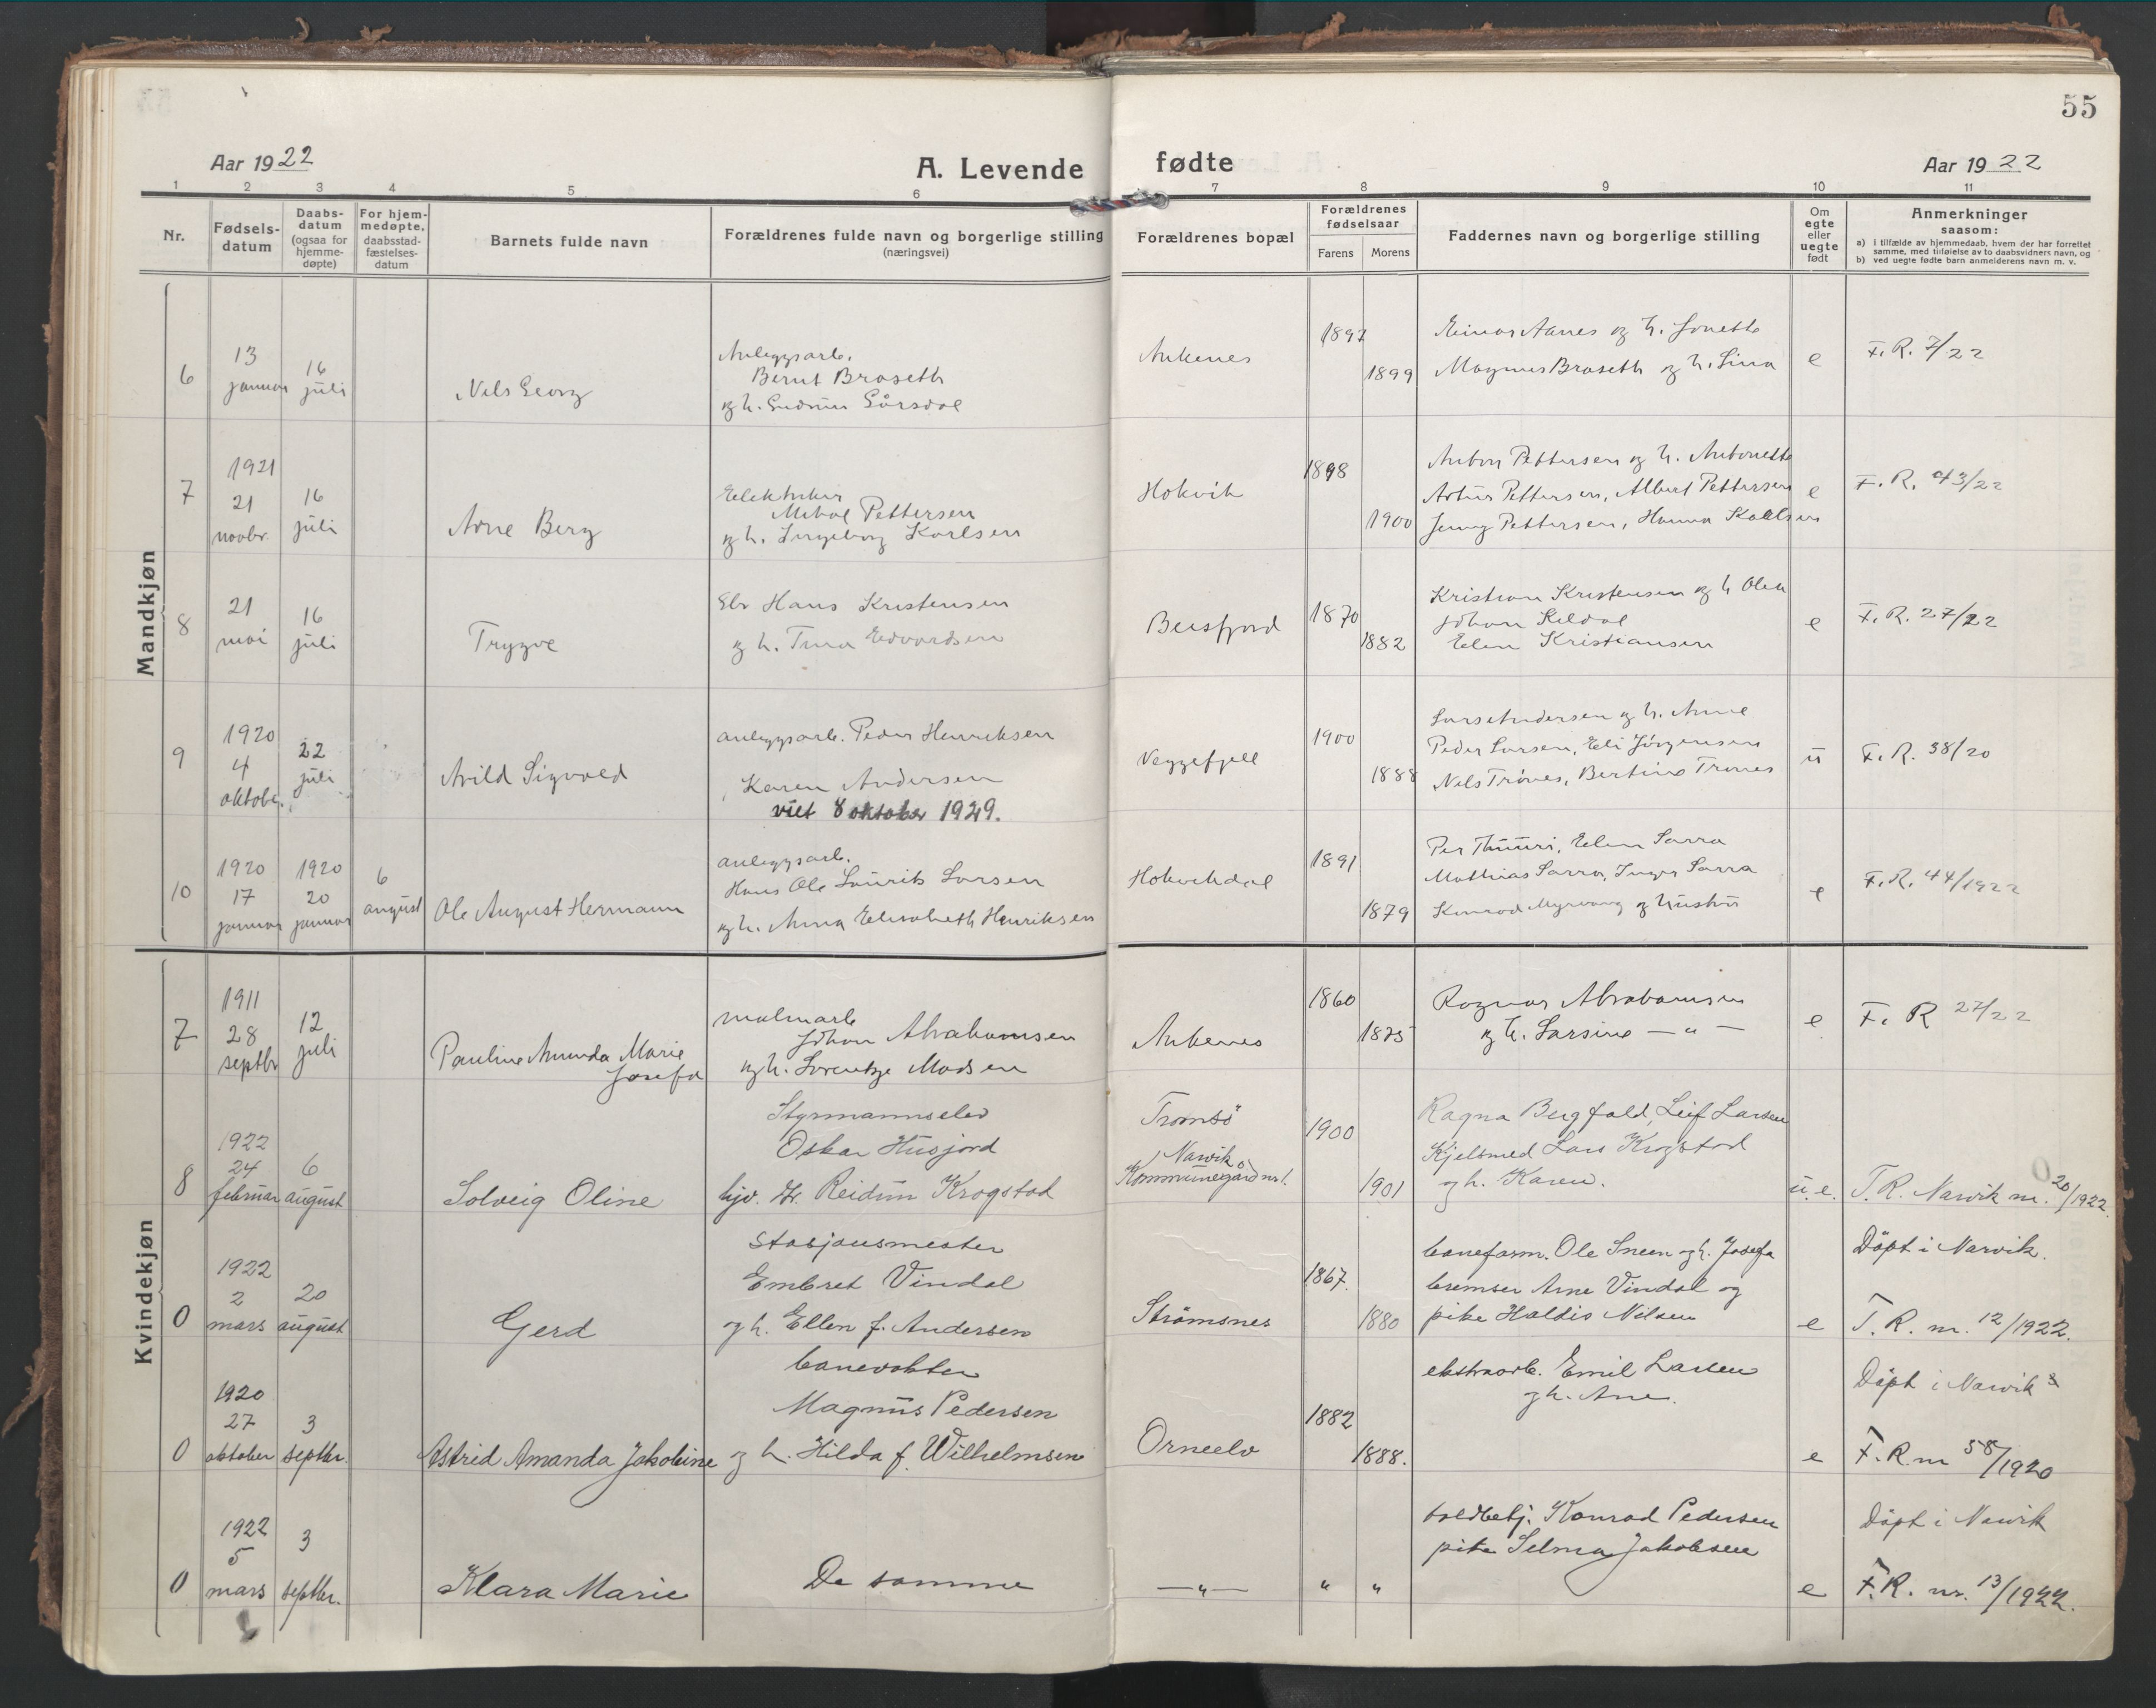 55
Aar 1922
A. Levende
fødte
Aar 1922
1 2 3 4 5 6 7 8 9 10 11
Nr.
Fødsels-
datum
Daabs-
datum
(ogsaa for
hjemme-
døpte)
For hjem-
medøpte,
daabsstad-
fæstelses-
datum
Barnets fulde navn
Forældrenes fulde navn og borgerlige stilling
(næringsvei)
Forældrenes bopæl
Forældrenes
fødselsaar
Farens Morens
Faddernes navn og borgerlige stilling
Om
egte
eller
uegte
født
Anmerkninger
saasom:
a) i tilfælde av hjemmedaab, hvem der har forrettet
samme, med tilføielse av to daabsvidners navn, og
b) ved uegte fødte barn anmelderens navn m. v.
Mandkjøn
6
13
januar
16
juli
Nils Georg
Anleggsarb.
Bernt Broseth
og h. Gudrun
Ankenes
1897
1899
Einar Aanes og h. Jonette
Magnus Broseth og h. Lina
e
F. R. 7/22
7
1921
21
novbr.
16
juli
Arne Berg
Elektriker
Pettersen
og h. Ingeborg Karlsen
Hokvik
1898
1900
Anton Pettersen og h. Antonette
Artur Pettersen, Albert Pettersen
Jenny Pettersen, Hanna
e
F. R. 43/22
8
21
mai
16
juli
Trygve
Hans Kristensen
og h. Tina Edvardsen
Beisfjord
1870
1882
Kristian Kristensen og h
Johan Kildal
Elen Kristiansen
e
F. R. 27/22
9
1920
4
oktober.
22
juli
Arild Sigvald
anleggsarb. Peder Henriksen
Karen Andersen
viet 8 oktober 1929.
Veggefjell
1900
1888
Lars Andersen og h. Anne
Peder Larsen, Eli Jörgensen
Nels Trönes, Bertine Trönes
u
F. R. 38/20
10
1920
17
januar
1920
20
januar
6
august
Ole August Hermann
anleggsarb.
Hans Ole Laurits Larsen
og h. Anna Elisabeth Henriksen
Hokvikdal
1891
1879
Per Thuuri, Elen Sarra
Mathias Sarra, Inger Sarra
Konrad Myrvang og hustru
e
F. R. 44/1922
Kvindekjøn
7
1911
28
septbr
12
juli
Pauline Amanda Marie
Josefa
malmarb
Johan Abrahamsen
og h. Lorentze Madsen
Ankenes
1860
1875
Ragnar Abrahamsen
og h. Larsine — " —
e
F. R 27/22
8
1922
24
februar
6
august
Solveig Oline
Styrmannselev
Oskar Husjord
hjv. Reidun Krogstad
Tromsö
Narvik
Kommunegård nr 1.
1900
1901
Ragna Bergfald, Leif Larsen
Kjelsmed Lars Krogstad
og h. Karen.
u. e.
F. R. Narvik nr. 20/1922.
0
1922
2
mars
20
august
Gerd
Stasjonsmester
Embret Vindal
og h. Ellen f. Andersen
Strömsnes
1867.
1880
baneform. Ole Sneen og h. Josefa
bremser Arne Vindal og
pike Haldis Nilsen
e
Döpt i Narvik.
F. R. nr. 12/1922.
0
1920
27
oktober
3
septbr.
Astrid Amanda Jakobine
banevokter
Magnus Pedersen
og h. Hilda f. Wilhelmsen
Orneelv
1882
1888.
ekstraarb. Emil Larsen
og h. Ane.
e
Döpt i Narvik
F. R. nr 58/1920
0
1922
5
mars
3
septbr.
Klara Marie
De samme
— " —
" "
toldbetj. Konrad Pedersen
pike Selma Jakobsen
e
Döpt i Narvik
F. R. nr. 13/1922.